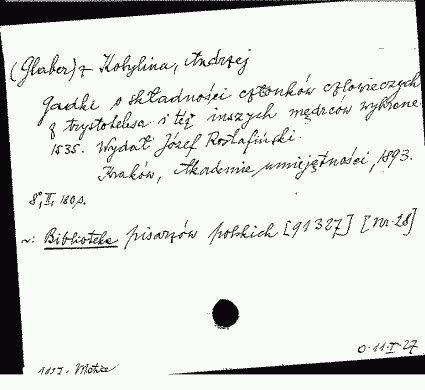 (Glaber) z Kobylina, Andrzej
Gadki o składności członków człowieczych
z Arystotelesa i też inszych mędrców wybrane
1535. Wydał Józef Rostafiński.
Kraków, Akademia umiejętności, 1893.
8°, II, 160 p.
~: Biblioteka pisarzów polskich [91327] [Nr. 28]
0-11-I-27